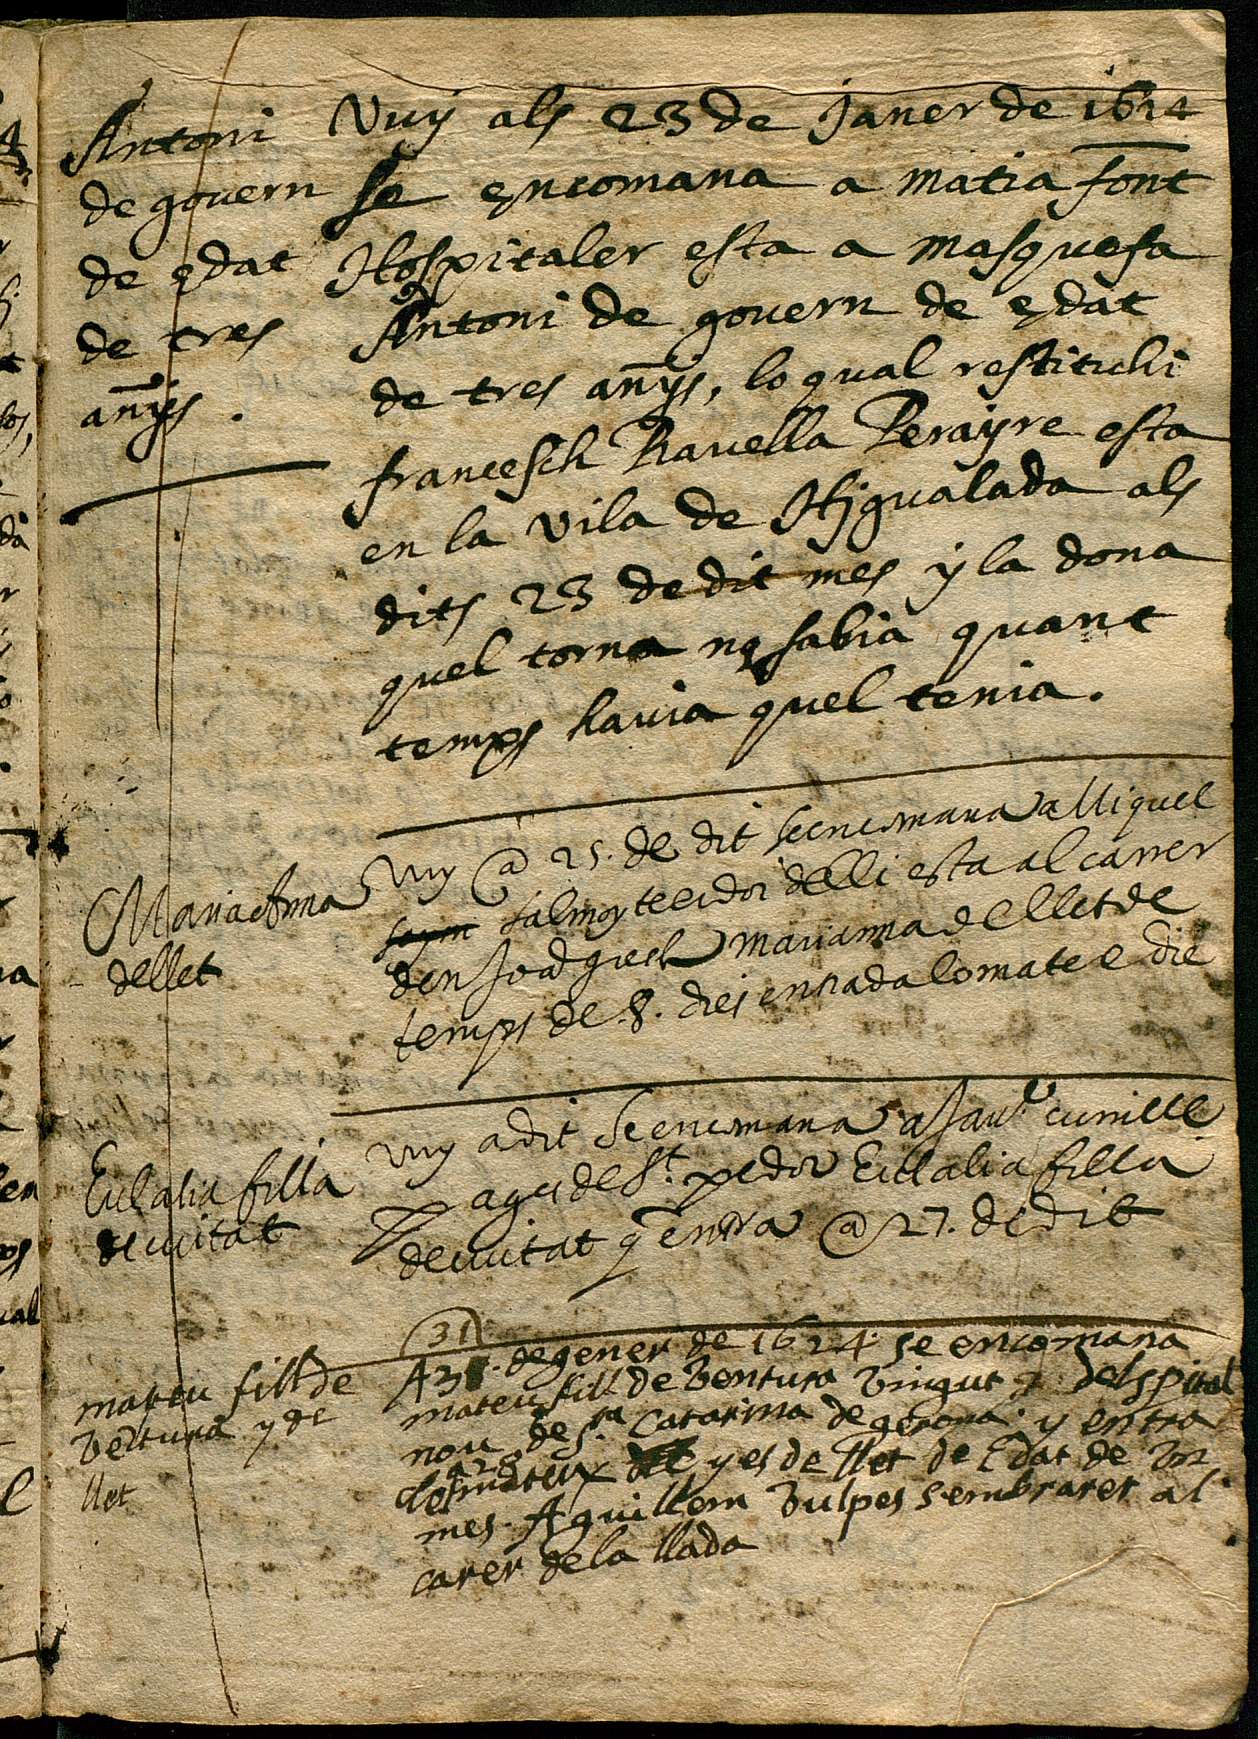 Antoni
de govern
de edat
de tres
añys.
Vuy als 23 de Janer de 1624
se encomana a matia font
Hospitaler esta a masquefa
Antoni de govern de edat
de tres añys, lo qual restituhi
francesch Ravella Perayre esta
en la vila de Hygualada als
dits 23 de dit mes y la dona
quel torna no sabia quant
temps havia quel tenia.
Maria Anna
de llet
Vuy @ 25. de dit se encomana a Miquel
teixidor de lli esta al carrer
den marianna de llet de
temps de .8. dies entrada lo mateix die
Eulalia filla
de ciutat
Vuy a dit se encomana a Jau.e cunille
pages de S.t pedor Eulalia filla
de ciutat q entra @ 27. de dit
mateu fill de
Ventura y de
llet
31
A 31. de gener de 1624. se encomana
mateu fill de Ventura Vingut del spital
nou de S.ta Catarina de gerona y entra
lo mateix y es de llet de Edat de un
mes. A guillem Vulpes sembrarer al
carer de la llada